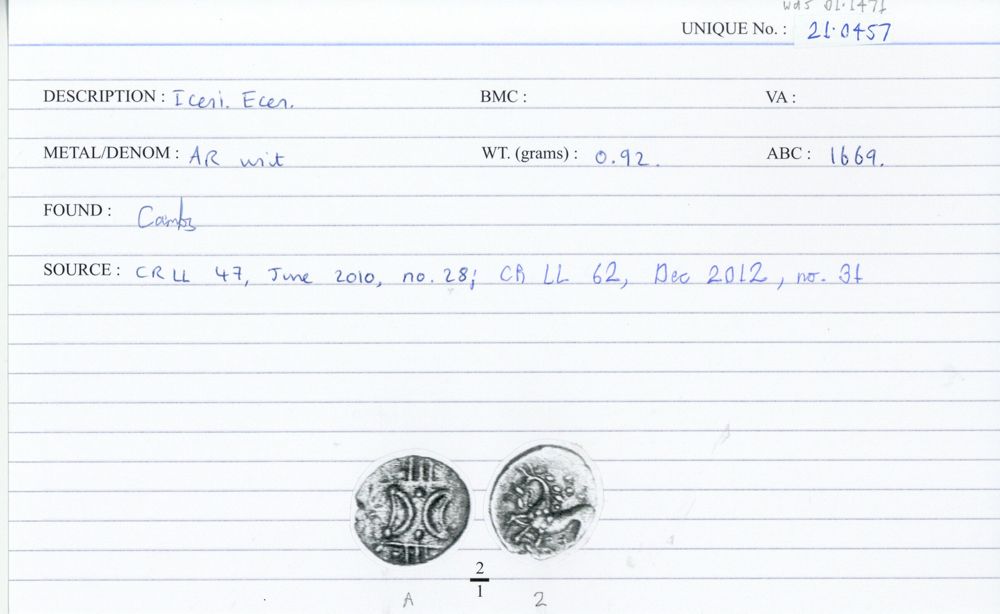 was 01.1471
UNIQUE No. : 21.0457
DESCRIPTION : Iceni. Ecen. BMC : VA :
METAL/DENOM : AR unit WT. (grams) : 0.92. ABC : 1669.
FOUND : Cambs
SOURCE : CR LL 47, June 2010, no. 28; CR LL 62, Dec 2012, no. 31
2
1
A 2